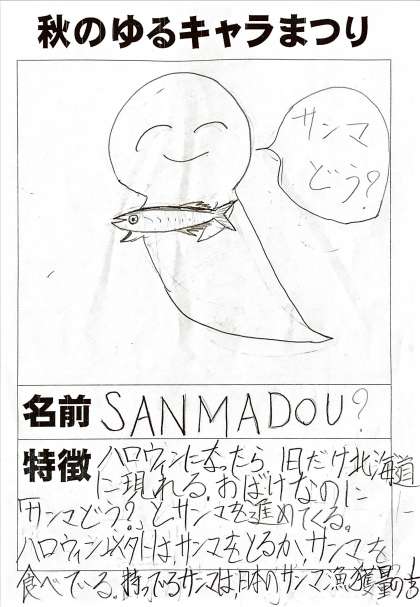 秋のゆるキャラまつり
サンマ
どう?
名前 SANMADOU?
特徴 ハロウィンになったら、1日だけ北海道
に現れる。おばけなのに
「サンマどう?」とサンマを進めてくる。
ハロウィン以外は、サンマをとるか、サンマを
食べている。持ってるサンマは、日本のサンマ漁獲量の